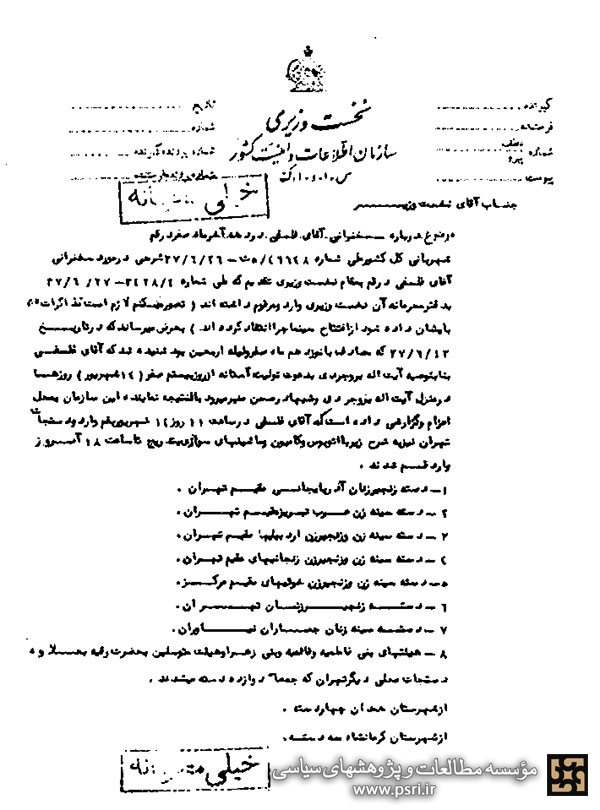 نخست وزیری
سازمان اطلاعات و امنیت کشور
س.ا.و.ا.ک
گیرنده
فرستنده
شماره
عطف
پیرو
پیوست
تاریخ
شماره
شماره پرونده گیرنده
شماره پرونده فرستنده
خیلی محرمانه
جناب آقای نخست وزیر
موضوع درباره - سخنرانی آقای فلسفی در دهه آخر ماه صفر در قم
شهربانی کل کشور طی شماره ۴۶۶۴۸/ ۳۷/۶/۲۶ شرحی در مورد سخنرانی
آقای فلسفی در قم بمقام نخست وزیری تقدیم که طی شماره ۳۷/۶/۲۷
بدفتر محرمانه آن نخست وزیری وارد و مرقوم داشته اند ( تصور میکنم لازم است تذاکرات
بایشان داده شود از افتتاح سینما چرا انتقاد کرده اند . ) بعرض میرساند که در تاریخ
که مصادف با نوزدهم ماه صفر و لیله اربعین بود شنیده شد که آقای فلسفی
بنا بتوصیه آیت اله بروجردی بدعوت تولیت آستانه از روز بیستم صفر ( ۱۴ شهریور ) روزها
در منزل آیت اله بروجردی و شبها در صحن منبر میرود بالنتیجه نماینده این سازمان بمحل
اعزام و گزارشی داده است که آقای فلسفی در ساعت ۱۱ روز ۱۴ شهریور بقم وارد و دستجات
تهران نیز به شرح زیر با اتوبوس و کامیون و ماشینهای سواری تا ساعت ۱۸ آنروز
وارد قم شدند .
۱- دسته زنجیرزنان آذربایجانی مقیم تهران .
۲- دسته سینه زن عرب تبریز مقیم تهران .
۳- دسته سینه زن و زنجیرزن اردبیلیها مقیم تهران .
۴- دسته سینه زن و زنجیرزن زنجانیهای مقیم تهران .
۵- دسته سینه زن و زنجیرزن خوئیهای مقیم مرکز .
۶- دسته زنجیرزنان تهران .
۷- دسته سینه زنان جماران نیاوران .
۸- هیئتهای بنی فاطمه و فائمیه و بنی زهرا و هیئت متوسلین بحضرت رقیه و
دستجات محلی دیگر تهران که جمعا دوازده دسته میشدند .
از شهرستان همدان چهار دسته .
از شهرستان کرمانشاه سه دسته .
خیلی محرمانه
مؤسسه مطالعات و پژوهشهای سیاسی
www.psri.ir